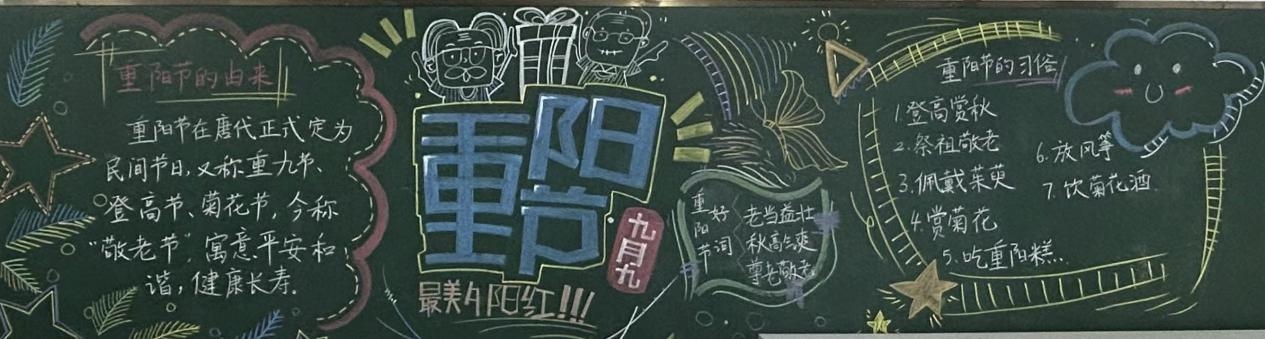 重阳节的由来
重阳节在唐代正式定为
民间节日,又称重九节、
登高节、菊花节,今称
“敬老节”,寓意平安和
谐,健康长寿.
重阳节
九月九
最美夕阳红!!!
重阳节
好词
老当益壮
秋高气爽
尊老敬老
重阳节的习俗
1.登高赏秋
2.祭祖敬老
3.佩戴茱萸
4.赏菊花
5.吃重阳糕...
6.放风筝
7.饮菊花酒